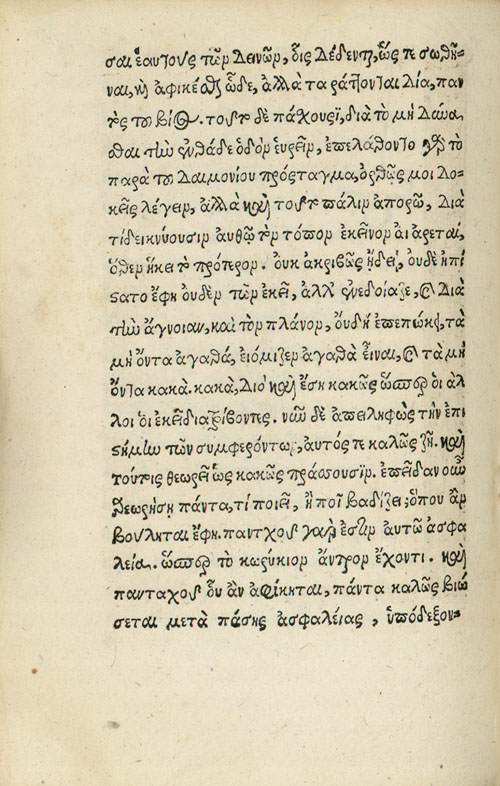 σαι ἑαυτοὺς τῶν δεινῶν, δὶς δέδενται, ὥστε σωθῆ-
ναι, καὶ ἀφικέσθαι ὧδε, ἀλλὰ ταράττονται διὰ, παν
τὸς τοῦ βίου. τοῦτο δὲ πάσχουσι, διὰ τὸ μὴ δύνα
σθαι τὴν ἐνθάδε ὁδὸν εὑρεῖν, ἐπελάθοντο γὰρ τὸ
παρὰ τοῦ δαιμονίου πρόσταγμα, ὀρθῶς μοι δο-
κεῖς λέγειν, ἀλλὰ καὶ τοῦτο πάλιν ἀπορῶ, διὰ
τί δεικνύουσιν αὐτῷ τὸν τόπον ἐκεῖνον αἱ ἀρεταί,
ὅθεν ἥκει τὸ πρότερον. οὐκ ἀκριβῶς ᾔδει, οὐδὲ ἠπί
στατο ἔφη οὐδὲν τῶν ἐκεῖ, ἀλλ' ἐνεδοίαζε, καὶ διὰ
τὴν ἄγνοιαν, καὶ τὸν πλάνον, ὃν δὴ ἐπεπώκει, τὰ
μὴ ὄντα ἀγαθά, ἐνόμιζεν ἀγαθὰ εἶναι, καὶ τὰ μὴ
ὄντα κακὰ. κακά, διὸ καὶ ἔζη κακῶς ὥσπερ οἱ ἄλ
λοι οἱ ἐκεῖ διατρίβοντες. νῦν δὲ ἀπειληφὼς τὴν ἐπι
στήμην τῶν συμφερόντων, αὐτός τε καλῶς ζῇ. καὶ
τούτους θεωρεῖ ὡς κακῶς πράσσουσιν. ἐπειδὰν οὖν
θεωρήσῃ πάντα, τί ποιεῖ, ἢ ποῖ βαδίζει; ὅπου ἂν
βούληται ἔφη. πανταχοῦ γὰρ ἔστιν αὐτῷ ἀσφά
λεια. ὥσπερ τὸ κωρύκιον ἄντρον ἔχοντι. καὶ
πανταχοῦ οὗ ἂν ἀφίκηται, πάντα καλῶς βιώ
σεται μετὰ πάσης ἀσφαλείας, ὑποδέξον-